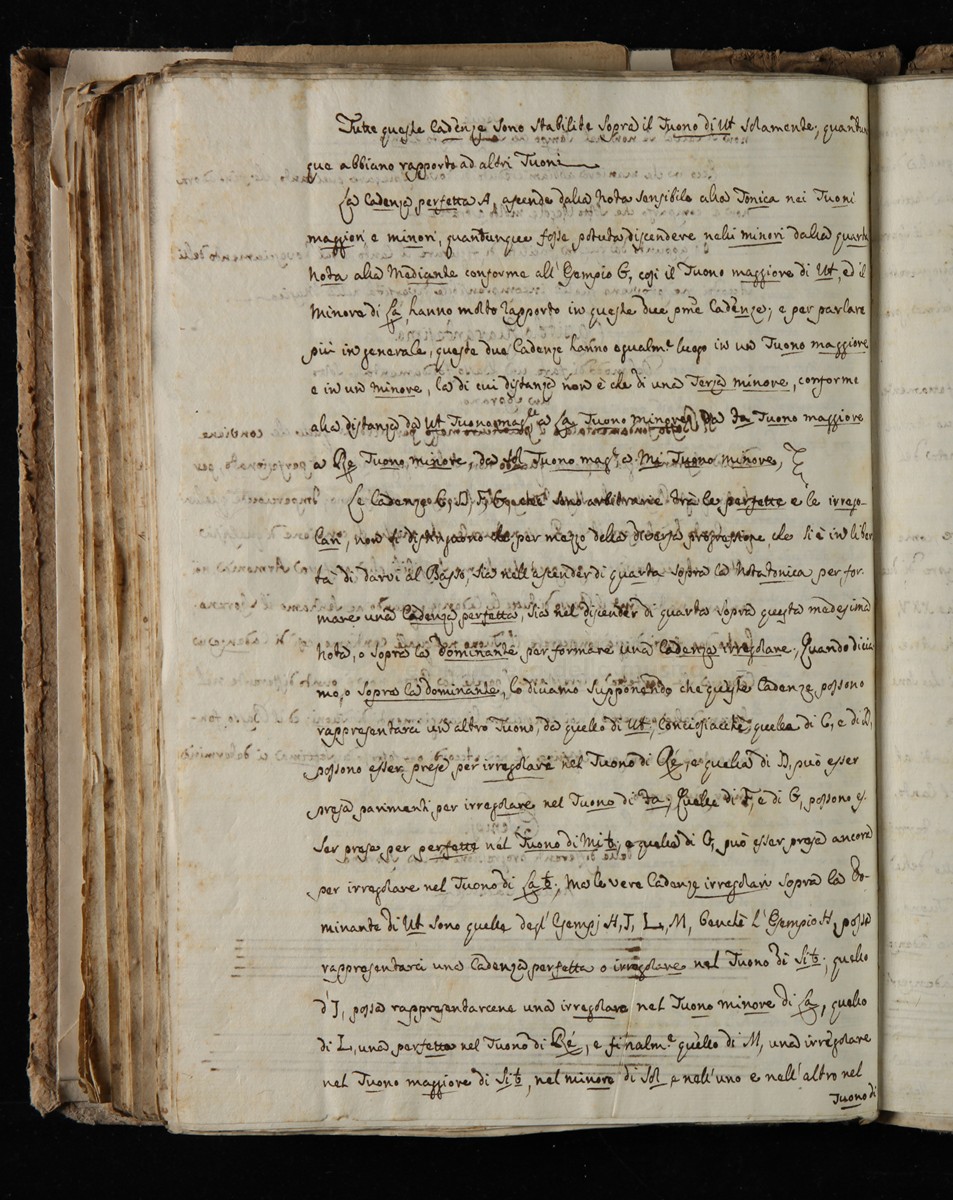 Tutte queste Cadenze sono stabilite sopra il Tuono di Ut solamente, quantun
que abbiano rapporto ad altri Tuoni
La Cadenza perfetta A, ascende dalla Nota sensibile alla Tonica nei Tuoni
maggiori, e minori, quantunque fosse potuta discendere nelli minori dalla quarta
Nota alla Mediante conforme all' Esempio G, così il Tuono maggiore di Ut, ed il
Minore di La, hanno molto rapporto in queste due pme Cadenze; e per parlare
più in generale, queste due Cadenze hanno egualme luogo in un Tuono maggiore
e in un minore, la di cui distanza non è che di una Terza minore, conforme
alla distanza da Ut Tuono magre a La Tuono Minore, da Fa Tuono maggiore
a Re Tuono minore, da Sol Tuono mage a Mi Tuono Minore,
Le Cadenze sono arbitrarie trà le perfette e le irrego-
lari, non si distinguono che per mezzo della diversa progressione, che si è in liber
tà di darvi al Basso, sia nell'ascender di quarta sopra la Nota tonica per for-
mare una Cadenza perfetta, sia nel discender di quarta sopra questa medesima
Nota, o sopra la dominante per formare una Cadenza irregolare; Quando dicia
mo, o sopra la dominante, lo diciamo supponendo che queste Cadenze possono
rappresentarci un altro Tuono, da quello di Ut; Conciosiacchè, quelle di C, e di D,
possono esser prese per irregolari nel Tuono di Re, e quella di D, può esser
presa parimenti per irregolare nel Tuono di Fa; Quelle di F, e di G, possono es.
ser prese per perfette nel Tuono di Mi b; e quella di G, può esser presa ancora
per irregolare nel Tuono di La b; Ma le vere Cadenze irregolari sopra la Do-
minante di Ut sono quelle degl' Esempj H, J, L, M, benchè l' Esempio H, possa
rappresentarci una Cadenza perfetta o irregolare nel Tuono di Si b; quello
d' J, possa rappresentarcene una irregolare nel Tuono minore di La, quello
di L, una perfetta nel Tuono di Re, e finalme quello di M, una irregolare
nel Tuono maggiore di Si b, nel minore di Sol e nell' uno e nell' altro nel
Tuono di